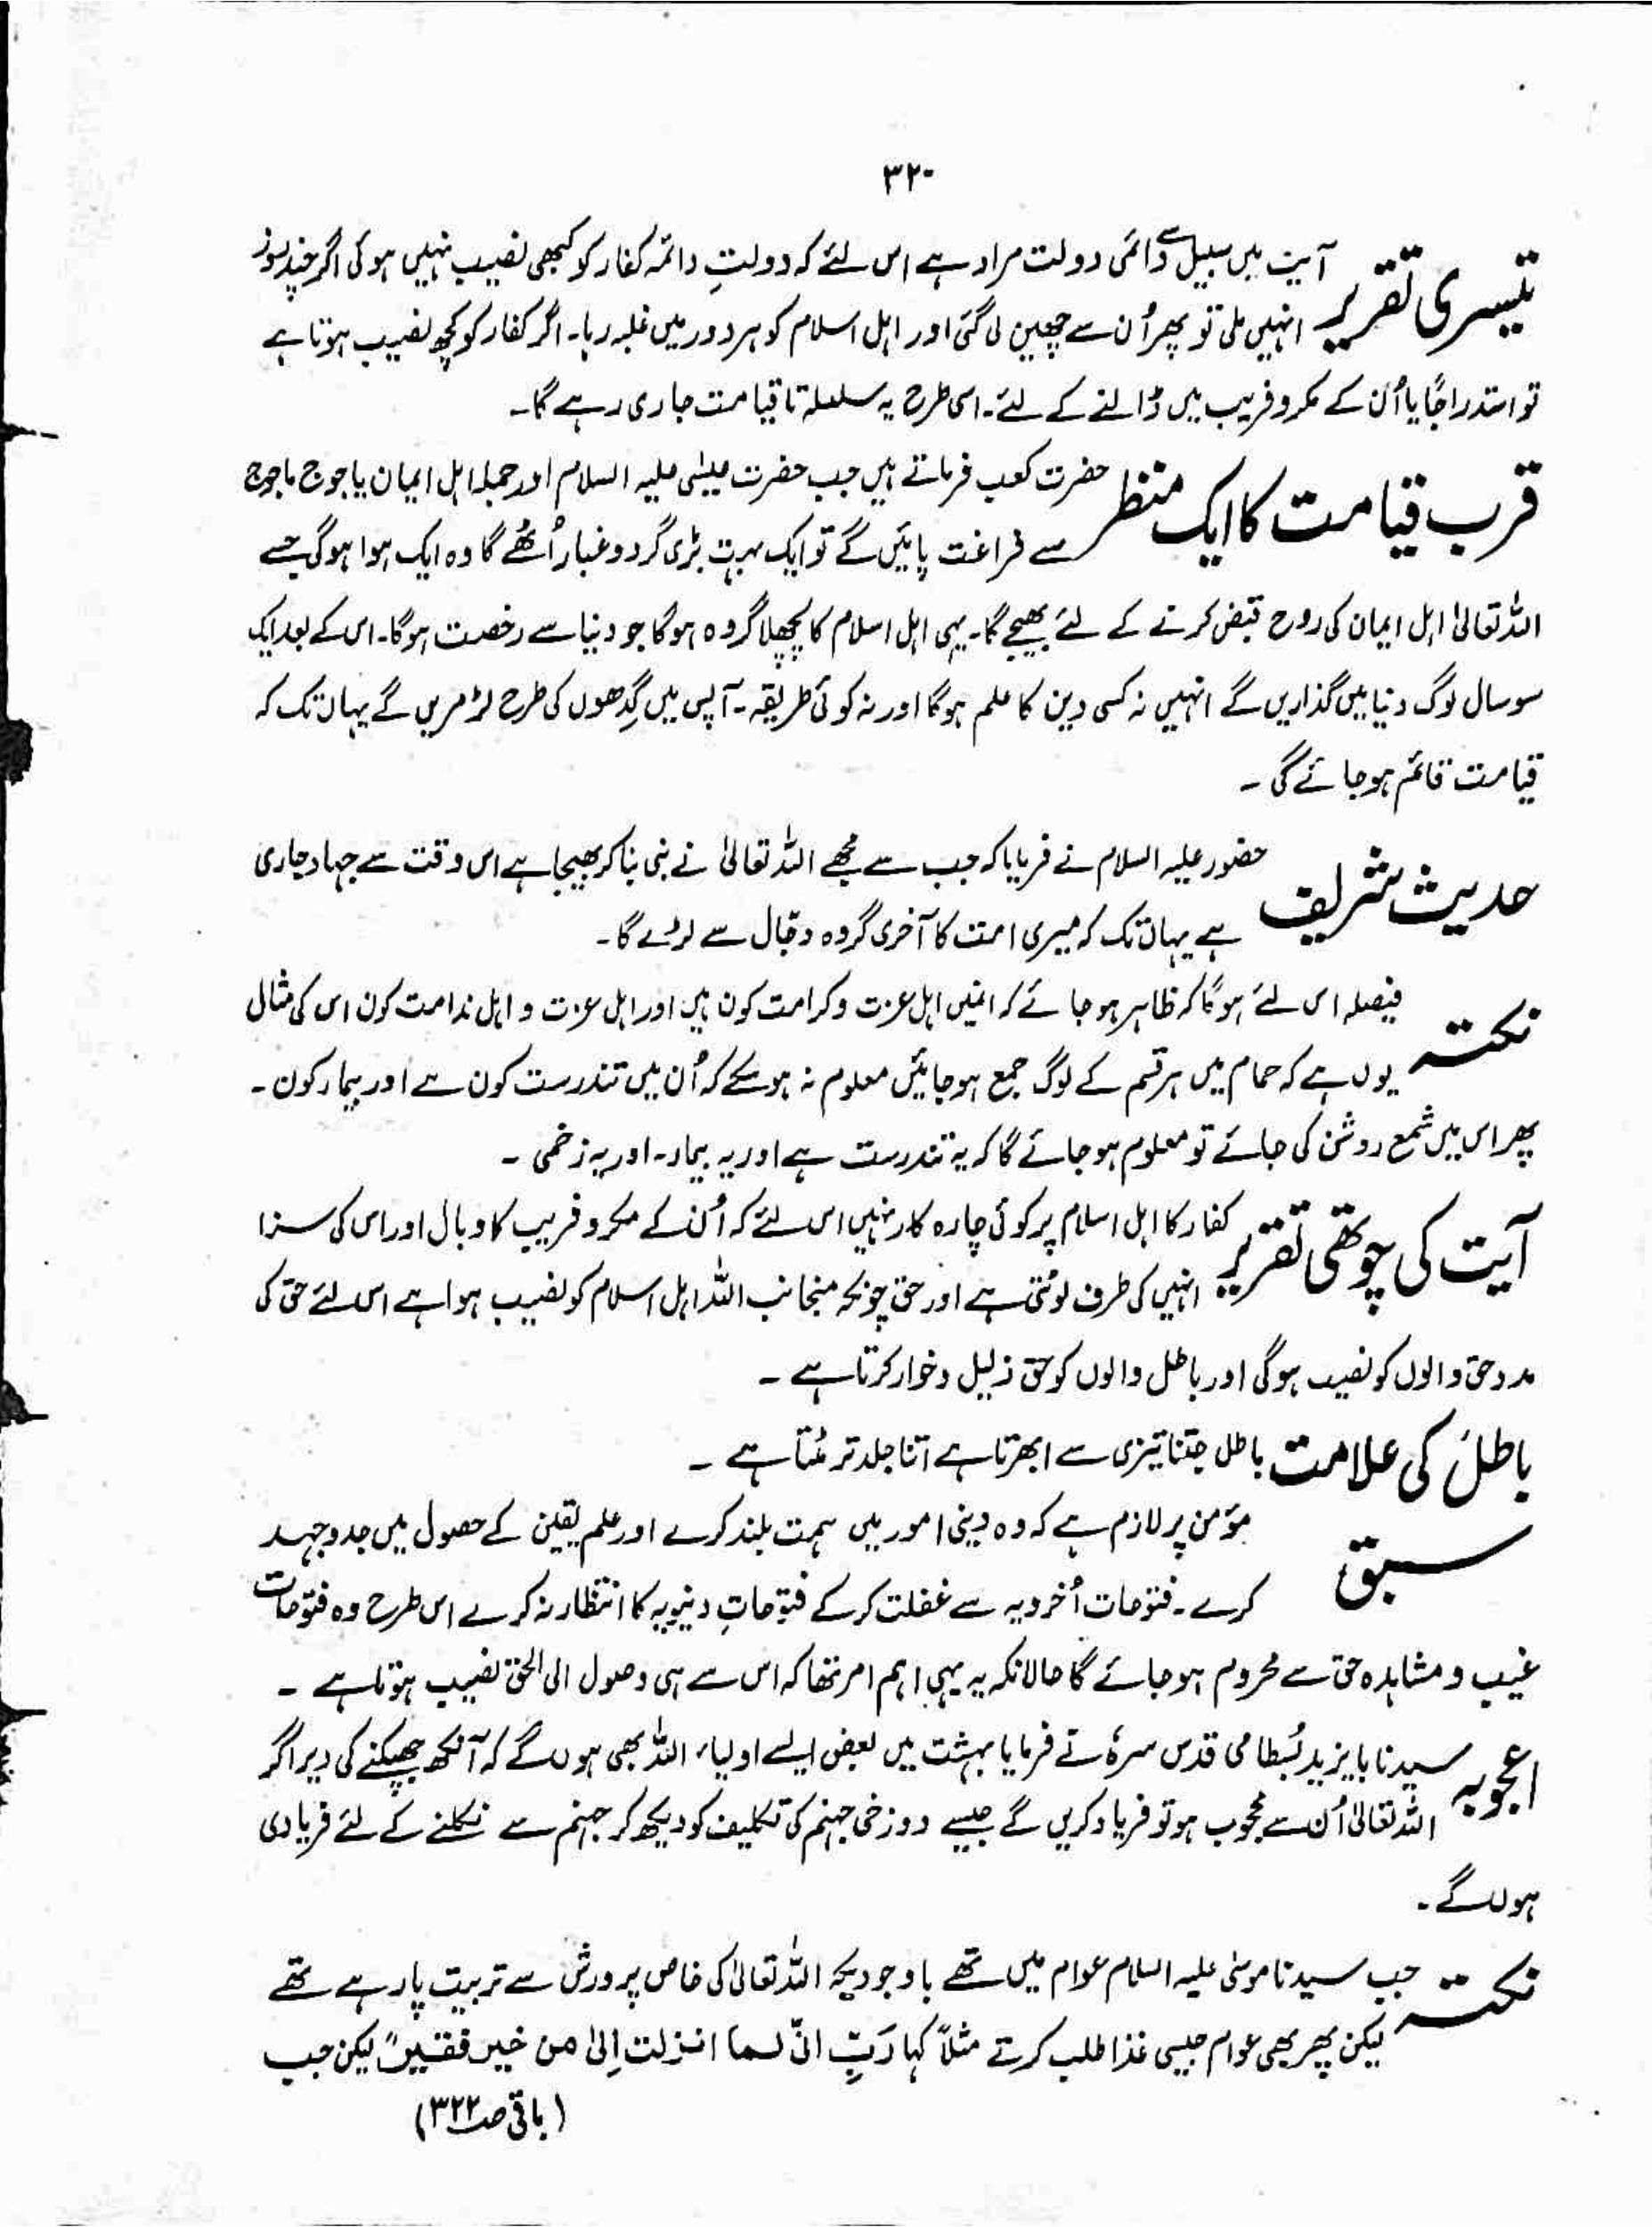 ۳۲۰
تیسری تقریر آیت میں سبیل سے دائمی دولت مراد ہے اس لئے کہ دولتِ دائمہ کفار کو کبھی نصیب نہیں ہوگی اگر چند روز
انہیں ملی تو پھر اُن سے چھین لی گئی اور اہل اسلام کو ہر دور میں غلبہ رہا۔ اگر کفار کو کچھ نصیب ہوتا ہے
تو استدراجًا یا اُن کے مکر و فریب میں ڈالنے کے لئے۔ اسی طرح یہ سلسلہ تا قیامت جاری رہے گا۔
قرب قیامت کا ایک منظر حضرت کعب فرماتے ہیں جب حضرت عیسٰی علیہ السلام اور جملہ اہل ایمان یاجوج ماجوج
سے فراغت پائیں گے تو ایک بہت بڑی گرد و غبار اُٹھے گا وہ ایک ہوا ہوگی جسے
اللہ تعالیٰ اہل ایمان کی روح قبض کرنے کے لئے بھیجے گا۔ یہی اہل اسلام کا پچھلا گروہ ہوگا جو دنیا سے رخصت ہوگا۔ اس کے بعد ایک
سو سال لوگ دنیا میں گذاریں گے انہیں نہ کسی دین کا علم ہوگا اور نہ کوئی طریقہ۔ آپس میں گدھوں کی طرح لڑ مریں گے یہاں تک کہ
قیامت قائم ہو جائے گی ۔
حدیث شریف حضور علیہ السلام نے فرمایا کہ جب سے مجھے اللہ تعالیٰ نے نبی بنا کر بھیجا ہے اس وقت سے جہاد جاری
ہے یہاں تک کہ میری امت کا آخری گروہ دجّال سے لڑے گا۔
نکتہ فیصلہ اس لئے ہوگا کہ ظاہر ہو جائے کہ انمیں اہل عزت و کرامت کون ہیں اور اہل عزت و اہل ندامت کون اس کی مثال
یوں ہے کہ حمام میں ہر قسم کے لوگ جمع ہو جائیں معلوم نہ ہو سکے کہ اُن میں تندرست کون ہے اور بیمار کون ۔
پھر اس میں شمع روشن کی جائے تو معلوم ہو جائے گا کہ یہ تندرست ہے اور یہ بیمار۔ اور یہ زخمی ۔
آیت کی چوتھی تقریر کفار کا اہل اسلام پر کوئی چارہ کار نہیں اس لئے کہ اُن کے مکر و فریب کا وبال اور اس کی سزا
انہیں کی طرف لوٹتی ہے اور حق چونکہ منجانب اللہ اہل اسلام کو نصیب ہوا ہے اس لئے حق کی
مدد حق والوں کو نصیب ہوگی اور باطل والوں کو حق ذلیل و خوار کرتا ہے ۔
باطل کی علامت باطل جتنا تیزی سے ابھرتا ہے اتنا جلد تر مٹتا ہے ۔
سبق مؤمن پر لازم ہے کہ وہ دینی امور میں ہمت بلند کرے اور علم یقین کے حصول میں جد و جہد
کرے۔ فتوحات اُخرویہ سے غفلت کرکے فتوحاتِ دنیویہ کا انتظار نہ کرے اس طرح وہ فتوحات
غیب و مشاہدہ حق سے محروم ہو جائے گا حالانکہ یہ یہی اہم امر تھا کہ اس سے ہی وصول الی الحق نصیب ہوتا ہے ۔
اعجوبہ سیدنا بایزید بُسطامی قدس سرہٗ نے فرمایا بہشت میں بعض ایسے اولیاء اللہ بھی ہوں گے کہ آنکھ جھپکنے کی دیر اگر
اللہ تعالیٰ اُن سے محجوب ہو تو فریاد کریں گے جیسے دوزخی جہنم کی تکلیف کو دیکھ کر جہنم سے نکلنے کے لئے فریادی
ہوں گے ۔
نکتہ جب سیدنا موسٰی علیہ السلام عوام میں تھے باوجودیکہ اللہ تعالیٰ کی خاص پرورش سے تربیت پا رہے تھے
لیکن پھر بھی عوام جیسی غذا طلب کرتے مثلاً کہا رَبِّ انّی لما انزلت اِلیٰ من خیر فقیرٌ لیکن جب
(باقی صہ ۳۲۲)